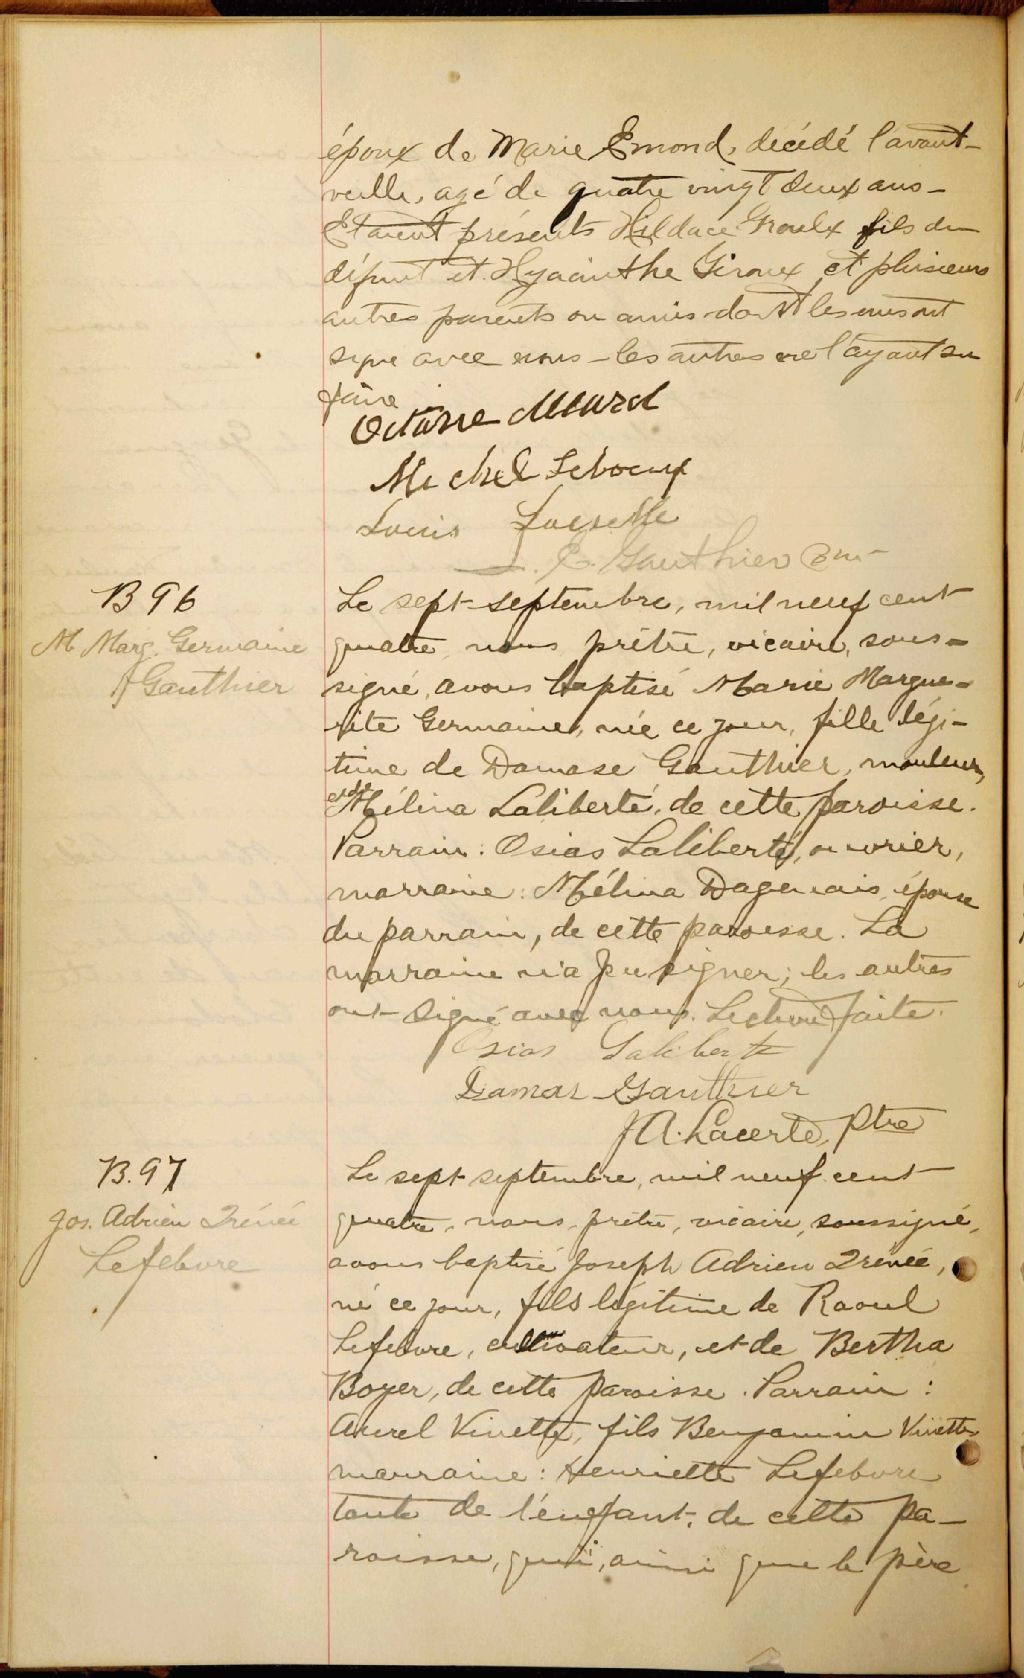 époux de Marie Emond, décédé l'avant-
veille, agé de quatre vingt deux ans -
Etaient présents Hildace Groulx fils du
défunt et Hyacinthe Giroux et plusieurs
autres parents ou amis dont les uns ont
signé avec nous - les autres ne l'ayant su
faire
Octave Meurd
Michel Leboeuf
Louis Loiselle
E. Gauthier
B 96
M Marg. Germaine
Gauthier
Le sept septembre, mil neuf cent
quatre, nous prêtre, vicaire, sous-
signé, avons baptisé Marie Margue-
rite Germaine, née ce jour, fille légi-
time de Damase Gauthier, mouleur,
et de Mélina Laliberté, de cette paroisse.
Parrain: Osias Laliberté, ouvrier,
marraine: Mélina Dagenais, épouse
du parrain, de cette paroisse. La
marraine n'a pu signer; les autres
ont signé avec nous. Lecture faite.
Osias Laliberte
Damas Gauthier
J A. Lacerte, Ptre
B. 97
Jos. Adrien Irénée
Lefebvre
Le sept septembre, mil neuf cent
quatre, nous, prêtre, vicaire, soussigné,
avons baptisé Joseph Adrien Irénée,
né ce jour, fils légitime de Raoul
Lefebvre, cultivateur, et de Bertha
Boyer, de cette paroisse. Parrain:
Aurel Vinette, fils Benjamin Vinette
marraine: Henriette Lefebvre
tante de l'enfant, de cette pa-
roisse, qui, ainsi que le père